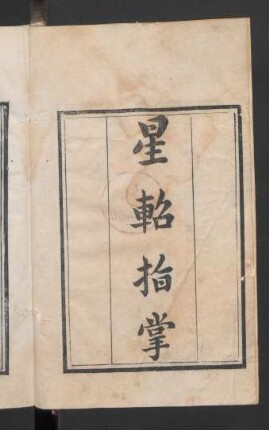 星軺指掌